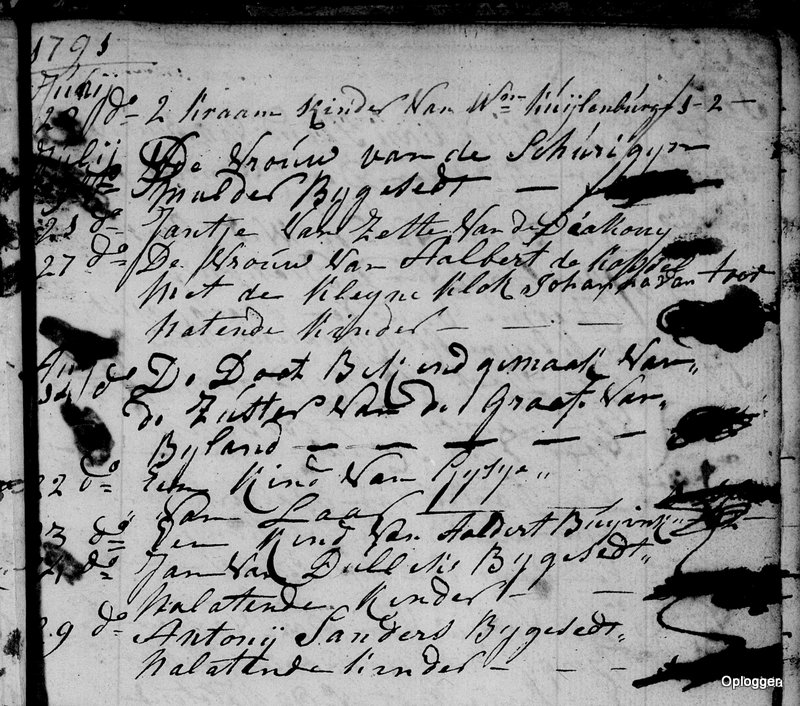 1791
Junij
28 do 2 Kraam Kinder Van Wm Kuijlenburg 1-2-
Julij De Vrouw van de Schúrigyn
mulder Bygesedt -
21 do Jantje Van Zette Van de Deakony
27 do De Vrouw Van Aalbert de
Met de Kleyne Klok Johanna Van
Natende Kinder - - -
Au
14 do De Doot Bekend gemaak Van
de Zuster Van de Graaf Van
Byland - - - - -
22 do Een Kind Van Gysye
Van Laar
23 do Een Kind Van Aaldert
24 do Jan Van Bygesedt
Nalatende Kinder - -
29 do Antonij Sanders Bygesedt
Nalatende Kinder - - -
Oploggen